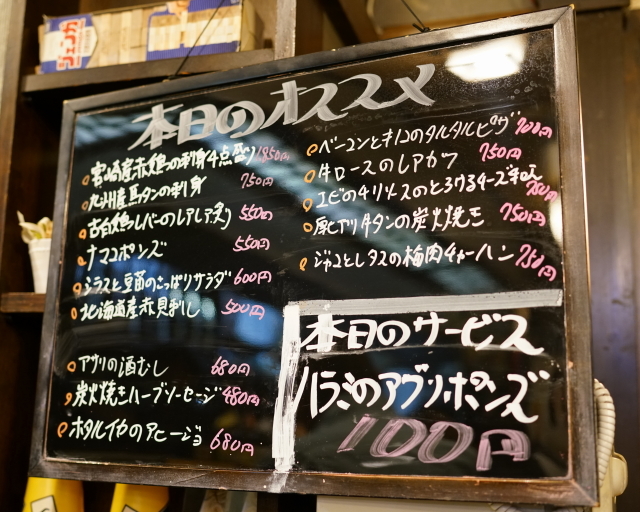 ジェンガ
本日のオススメ
宮崎産赤鶏の刺身4点盛り 1850円
九州産馬タンの刺身 750円
古白鶏レバーのレアレア炙り 550円
ナマコポンズ 550円
シラスと豆苗のさっぱりサラダ 600円
北海道産赤貝刺し 500円
アサリの酒むし 680円
炭火焼きハーブソーセージ 480円
ホタルイカのアヒージョ 680円
ベーコンとキノコのタルタルピザ 700円
牛ロースのレアカツ 750円
エビのチリソースのとろけるチーズ 750円
厚切り牛タンの炭火焼き 750円
ジャコとレタスの梅肉チャーハン 750円
本日のサービス
ハラミのアブリポンズ
100円